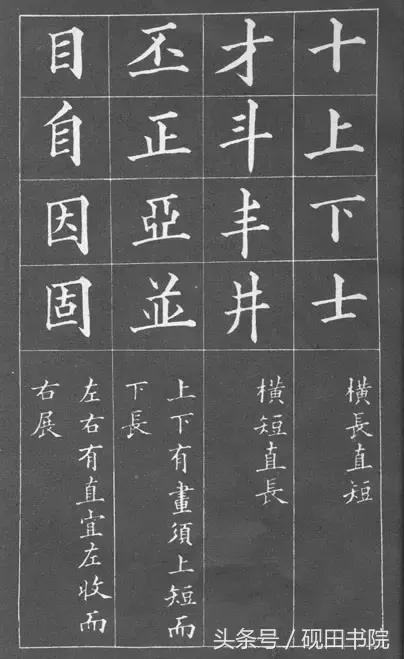 十
上
下
士
橫長直短
才
斗
丰
井
橫短直長
丕
正
亞
並
上下有畫須上短而
下長
目
自
因
固
左右有直宜左收而
右展
头条号／砚田书院